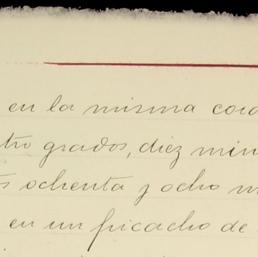 en la misma cord
tro grados, diez minu
s ochenta y ocho m
en un picacho de